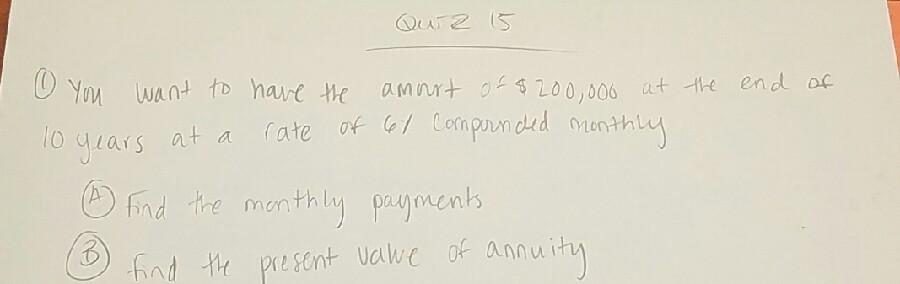 Quiz 15
① You want to have the amount of $200,000 at the end of
10 years at a rate of 6% Compounded monthly
Ⓐ Find the monthly payments
Ⓑ find the present value of annuity